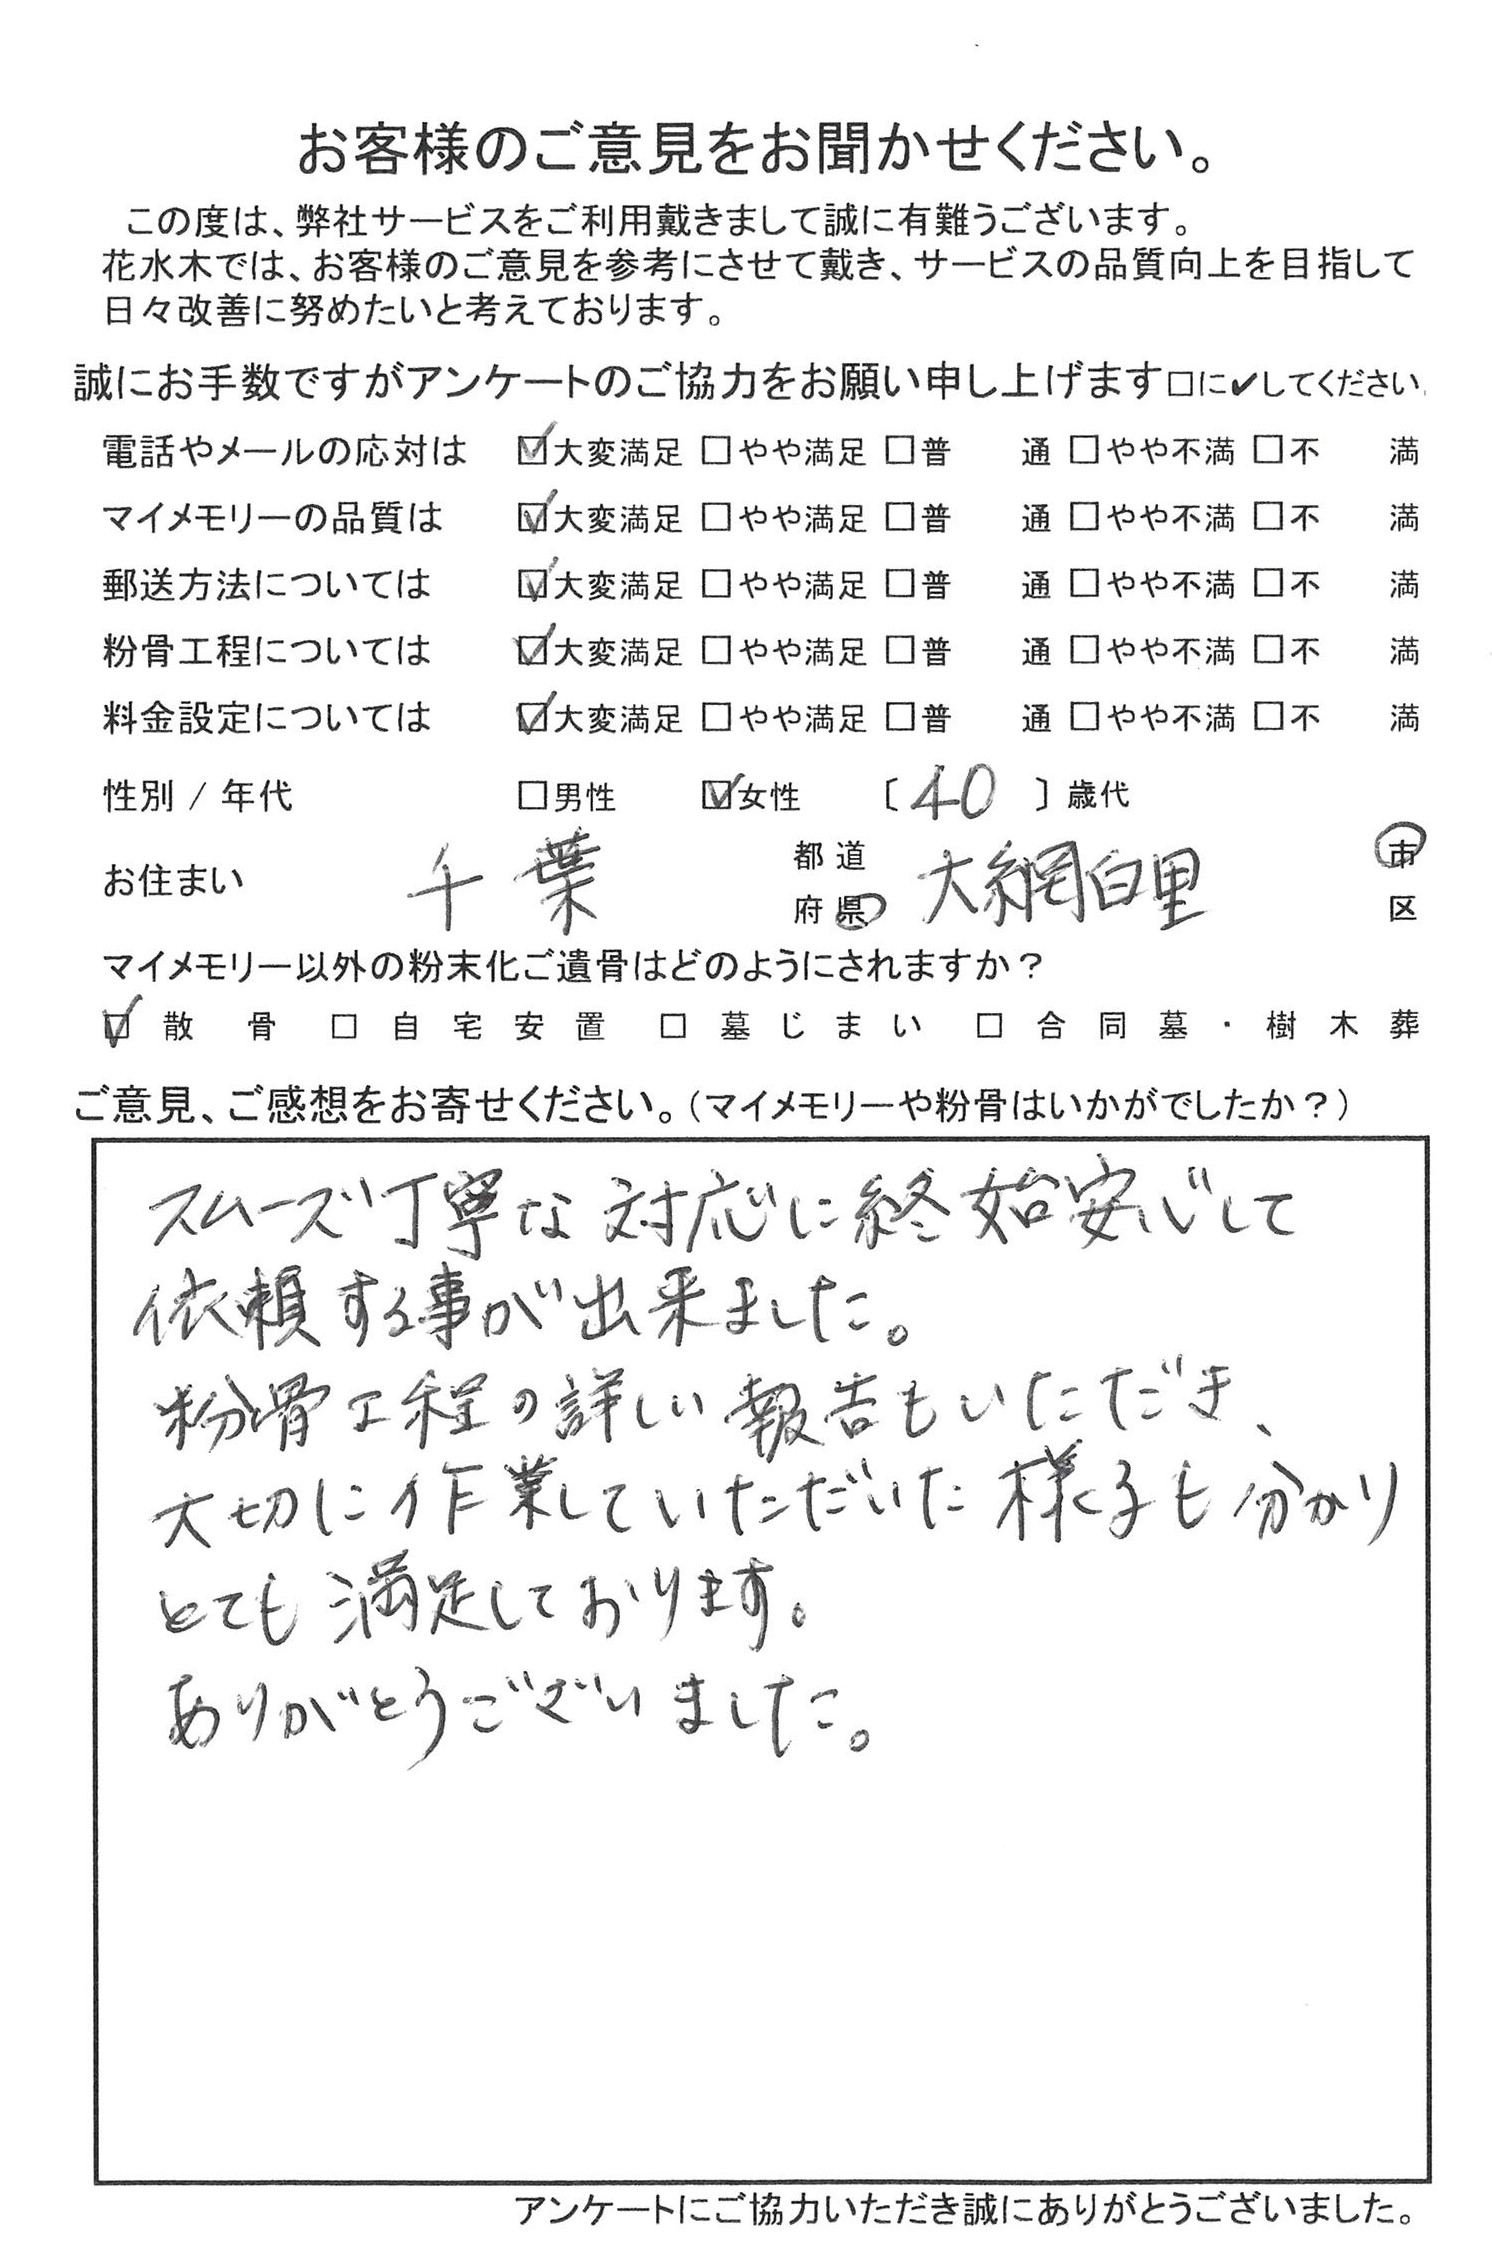 お客様のご意見をお聞かせください。
この度は、弊社サービスをご利用戴きまして誠に有難うございます。
花水木では、お客様のご意見を参考にさせて戴き、サービスの品質向上を目指して
日々改善に努めたいと考えております。
誠にお手数ですがアンケートのご協力をお願い申し上げます□に✔してください
電話やメールの応対は ☑大変満足 □やや満足 □普 通 □やや不満 □不 満
マイメモリーの品質は ☑大変満足 □やや満足 □普 通 □やや不満 □不 満
郵送方法については ☑大変満足 □やや満足 □普 通 □やや不満 □不 満
粉骨工程については ☑大変満足 □やや満足 □普 通 □やや不満 □不 満
料金設定については ☑大変満足 □やや満足 □普 通 □やや不満 □不 満
性別 / 年代 □男性 ☑女性 〔 40 〕歳代
お住まい 千葉 都道府県 大網白里 市区
マイメモリー以外の粉末化ご遺骨はどのようにされますか？
☑ 散骨 □ 自宅安置 □ 墓じまい □ 合同墓・樹木葬
ご意見、ご感想をお寄せください。（マイメモリーや粉骨はいかがでしたか？）
スムーズ丁寧な対応に終始安心して
依頼する事が出来ました。
粉骨工程の詳しい報告もいただき、
大切に作業していただいた様子も分かり
とても満足しております。
ありがとうございました。
アンケートにご協力いただき誠にありがとうございました。